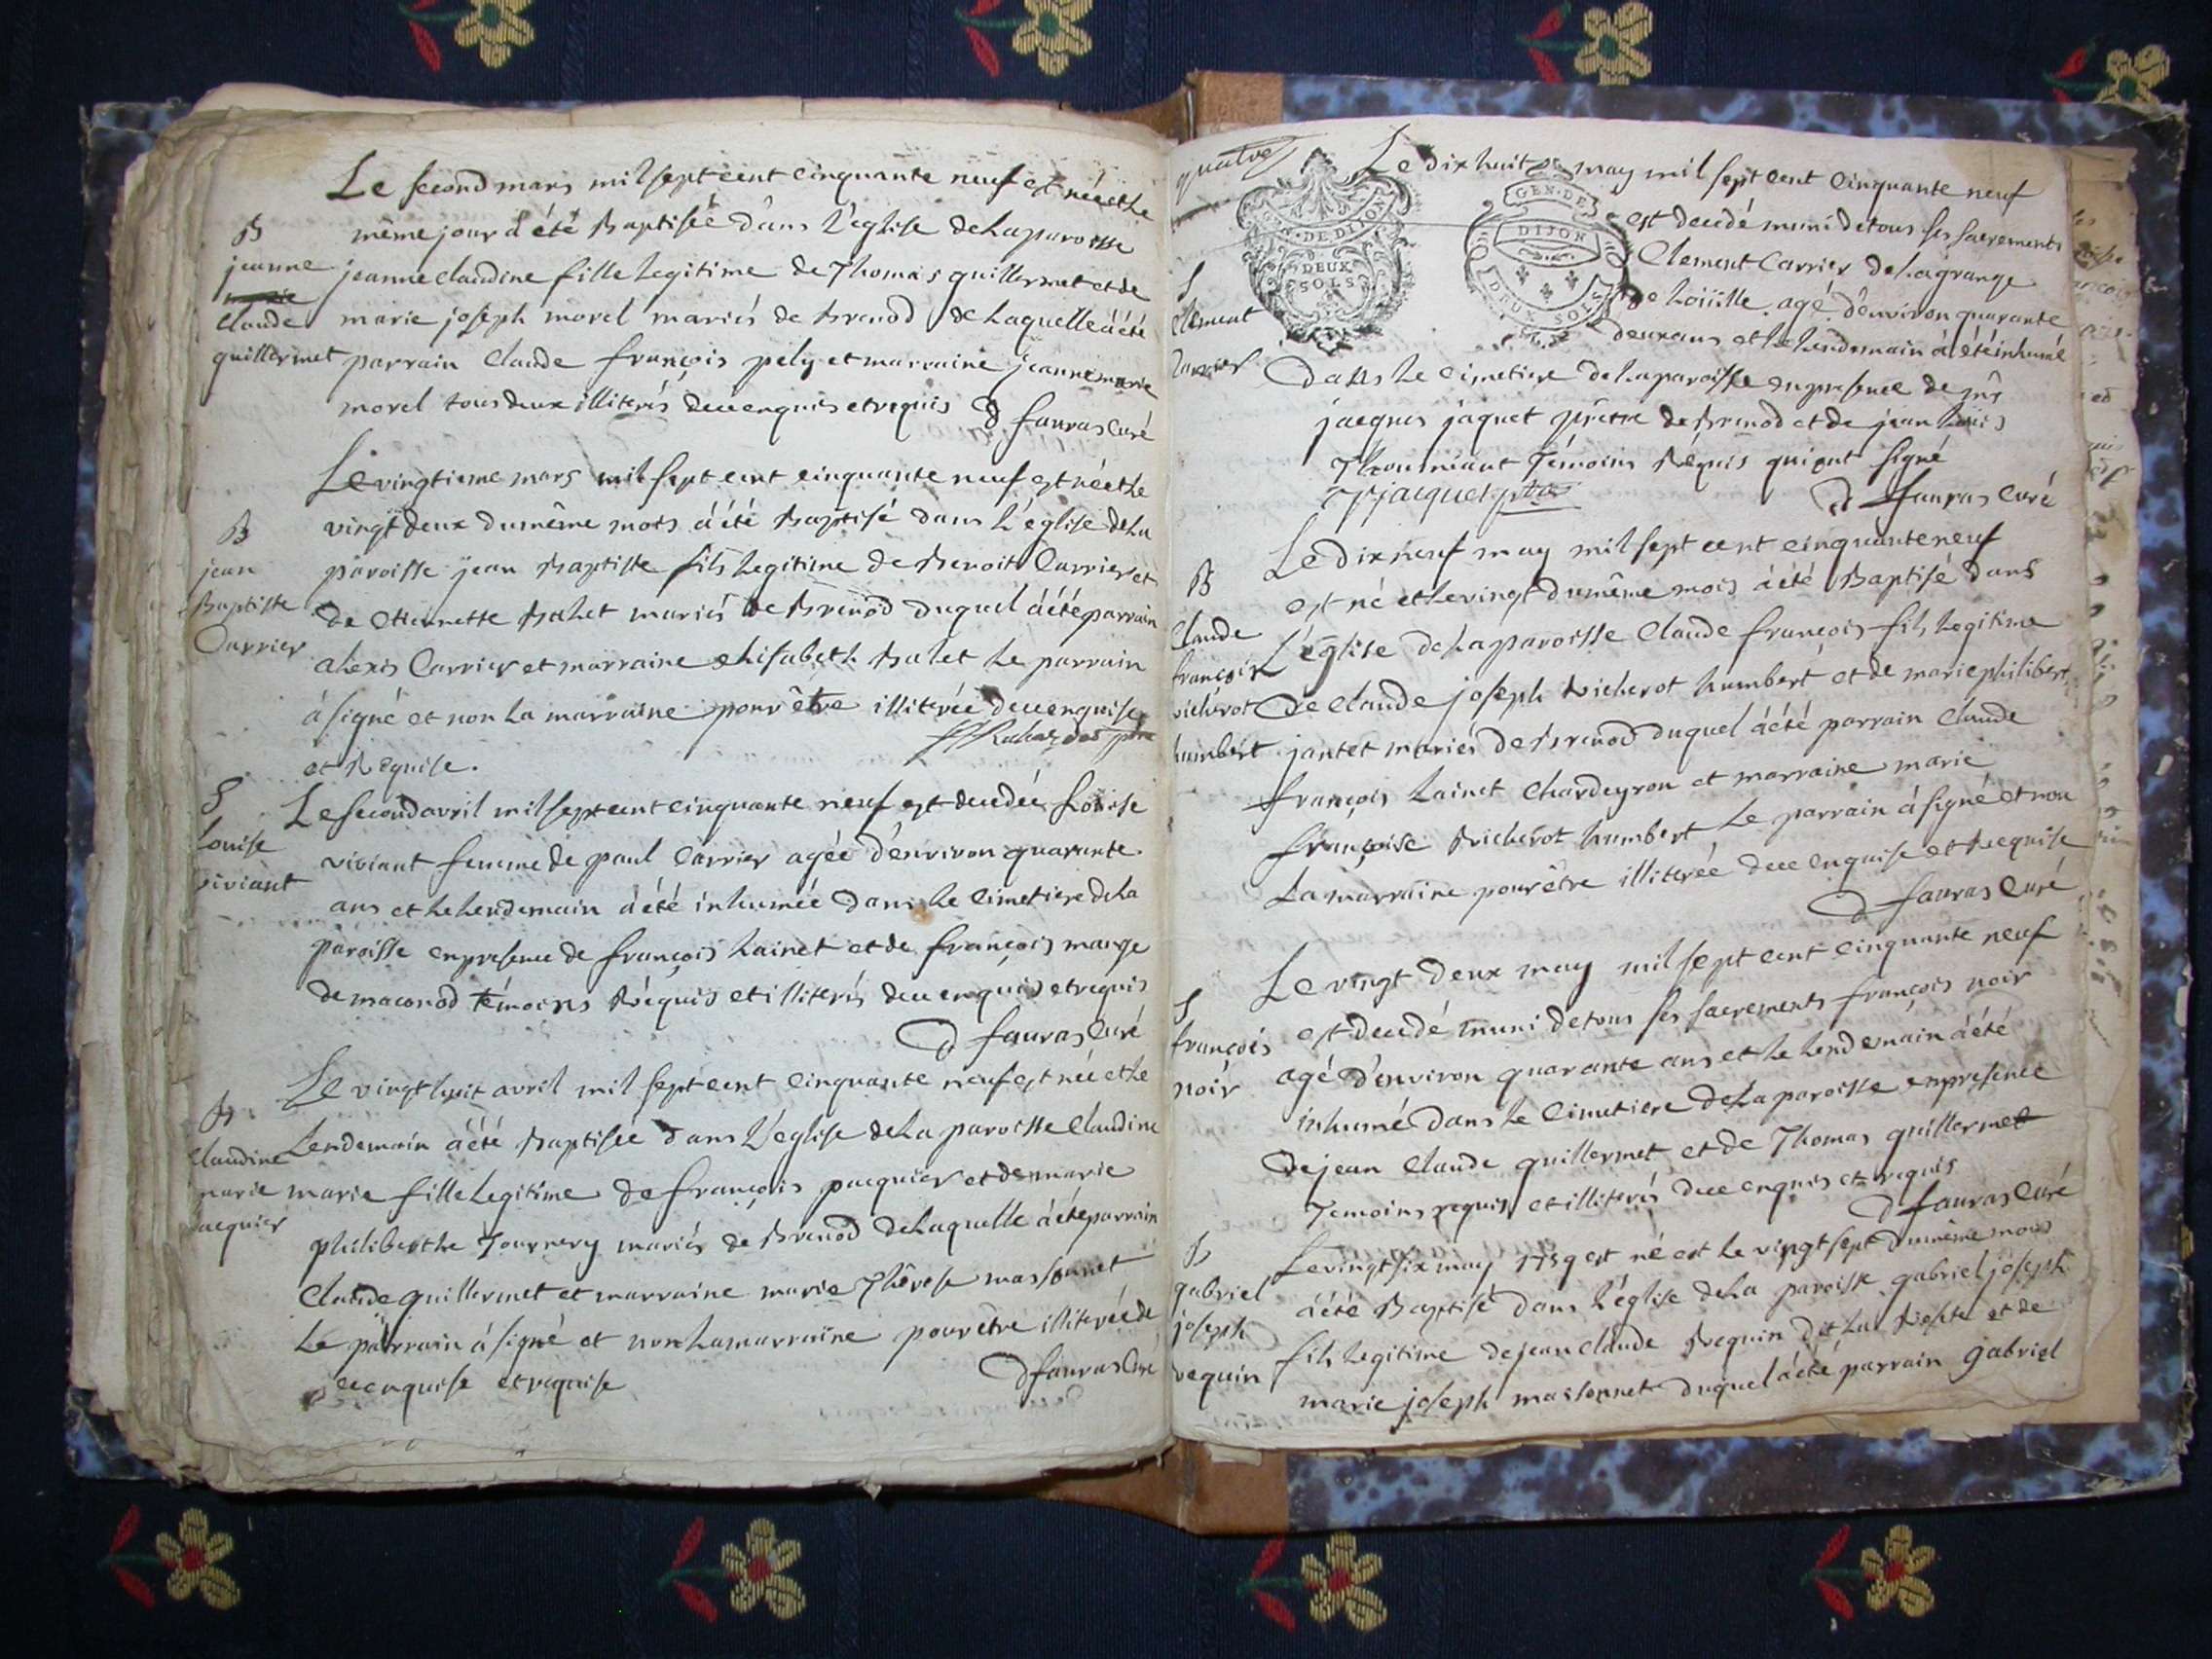 Le second mars mil sept cent cinquante neuf est née et le
même jour a été Baptisée dans l'église de la paroisse
B
jeanne
claude
guillermet
jeanne claudine fille legitime de Thomas guillermet et de
marie joseph morel mariés de Brenod de laquelle a été
parrain Claude françois pely et marraine jeanne marie
morel tous deux illiterés deue enquis et requis D fauras curé
Le vingtieme mars mil sept cent cinquante neuf est né et le
vingt deux du même mois a été Baptisé dans l'église de la
B
jean
Baptiste
Carrier
paroisse jean Baptiste fils legitime de Benoit Carrier et
de Ettiennette Balet mariés de Brenod duquel a été parrain
alexis Carrier et marraine elisabeth Balet le parrain
à signé et non la marraine pour être illiterée deue enquise
et Requise.
S
Louise
viviant
Le second avril mil sept cent cinquante neuf est decedée Louise
viviant femme de paul Carrier agée d'environ quarante
ans et le lendemain a été inhumée dans le cimetiere de la
paroisse en presence de françois Lainet et de françois mauge
de maconod témoins Réquis et illiterés deue enquis et requis
D fauras Curé
Le vingt huit avril mil sept cent cinquante neuf est née et le
B
claudine
marie
pacquier
Lendemain a été Baptisée dans l'église de la paroisse Claudine
marie fille Legitime de françois pacquier et de marie
philiberthe Tournery mariés de Brenod de laquelle a été parrain
Claude guillermet et marraine marie Thérese massonnet
Le parrain à signé et non la marraine pour être illiterée de
ce enquise et requise
D fauras Curé
quatre
GEN. DE DIJON
DEUX
SOLS
GEN. DE
DIJON
DEUX SOLS
Le dix huit may mil sept cent cinquante neuf
est decedé muni de tous ses sacrements
S
Clement
Carrier
Clement Carrier de la grange
de agé d'environ quarante
deux ans et le lendemain a été inhumé
dans le cimetiere de la paroisse en presence de mre
jacques jaquet prêtre de Brenod et de jean Louis
Témoins Réquis qui ont signé
jacquet ptre
D fauras Curé
Le dix neuf may mil sept cent cinquante neuf
B
Claude
françois
richerot
humbert
est né et le vingt du même mois a été Baptisé dans
L'église de la paroisse Claude françois fils legitime
de Claude joseph Richerot humbert et de marie philibert
jantet mariés de Brenod duquel a été parrain Claude
françois Lainet Chardeyron et marraine marie
françoise Richerot humbert Le parrain à signé et non
La marraine pour être illiterée deue enquise et Requise
D fauras Curé
Le vingt deux may mil sept cent cinquante neuf
S
françois
noir
est decedé muni de tous ses sacrements françois noir
agé d'environ quarante ans et le lendemain a été
inhumé dans le Cimetiere de la paroisse en presence
de jean Claude guillermet et de Thomas guillermet
Temoins requis et illiterés deue enquis et requis
D fauras Curé
B
gabriel
joseph
requin
Le vingt six may 1759 est né est le vingt sept du même mois
a été Baptisé dans l'église de la paroisse gabriel joseph
fils legitime de jean Claude Requin dit La et de
marie joseph massonnet duquel a été parrain gabriel